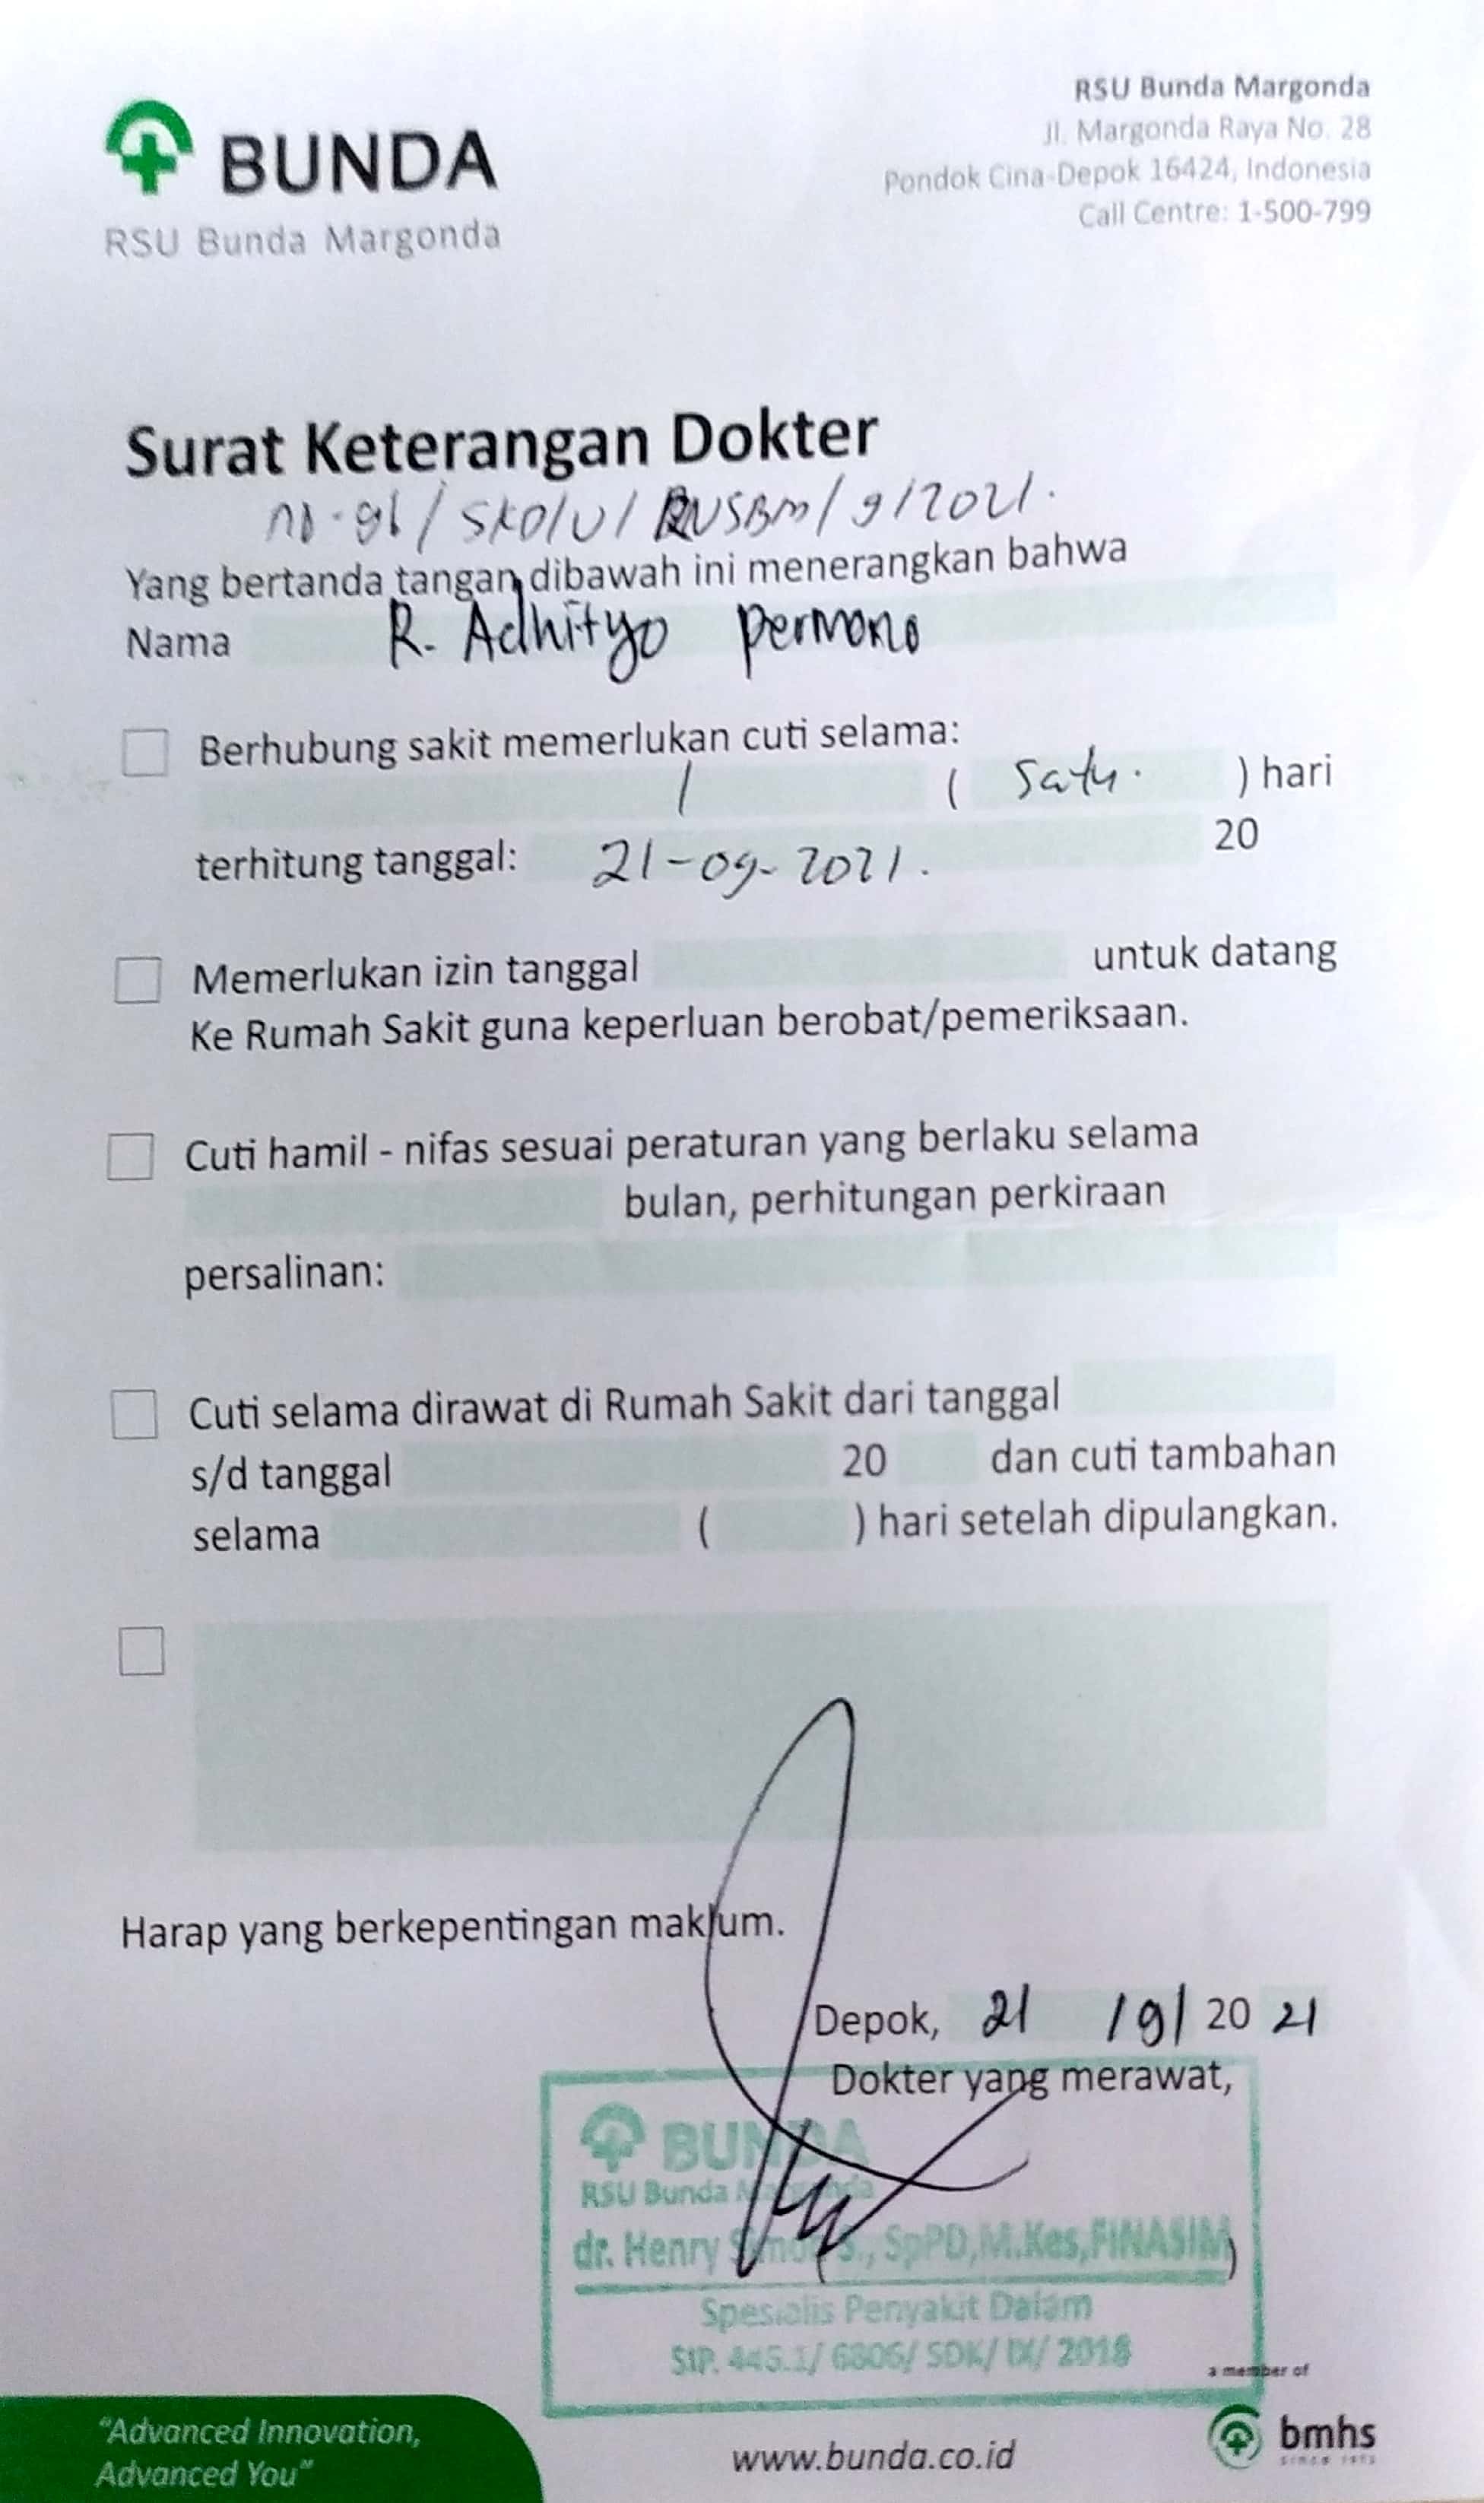 BUNDA
RSU Bunda Margonda
RSU Bunda Margonda
Jl. Margonda Raya No. 28
Pondok Cina-Depok 16424, Indonesia
Call Centre: 1-500-799
Surat Keterangan Dokter
/ 9/2021.
Yang bertanda tangan dibawah ini menerangkan bahwa
Nama R. Adhityo Permono
Berhubung sakit memerlukan cuti selama:
1 ( Satu. ) hari
terhitung tanggal: 21-09-2021. 20
Memerlukan izin tanggal untuk datang
Ke Rumah Sakit guna keperluan berobat/pemeriksaan.
Cuti hamil - nifas sesuai peraturan yang berlaku selama
bulan, perhitungan perkiraan
persalinan:
Cuti selama dirawat di Rumah Sakit dari tanggal
s/d tanggal 20 dan cuti tambahan
selama ( ) hari setelah dipulangkan.
Harap yang berkepentingan maklum.
Depok, 21 /9/ 20 21
Dokter yang merawat,
BUNDA
RSU Bunda Margonda
dr. Henry S., SpPD,M.Kes,FINASIM)
Spesialis Penyakit Dalam
SIP. 445.1/ 6806/ SDK/ IX/ 2018
a member of
bmhs
"Advanced Innovation,
Advanced You"
www.bunda.co.id